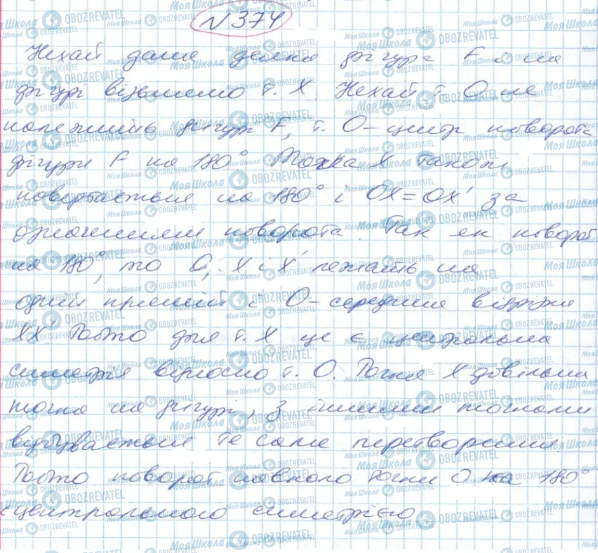 №374
Нехай дана деяка фігура F і на
фігурі візьмемо т. X. Нехай т. O не
належить фігурі F, т. O - центр поворота
фігури F на 180° Точка X також
повертається на 180° і OX = OX' за
означенням поворота. Так як поворот
на 180°, то O, X і X' лежать на
одній прямій і O - середина відрізка
XX' Тобто для т. X це є центральна
симетрія відносно т. O. Точка X довільна
точка на фігурі, з іншими точками
відбувається те саме перетворення
Тобто поворот навколо точки O на 180°
є центральною симетрією